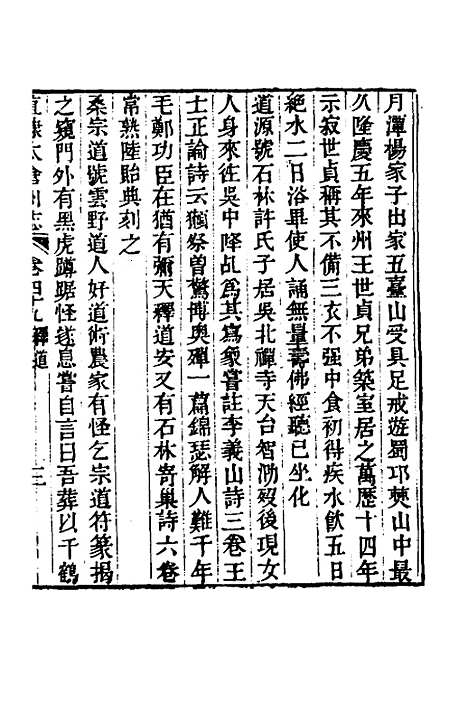 月潭楊家子出家五臺山受具足戒遊蜀邛㷋山中最
久隆慶五年來州王世貞兄弟築室居之萬歷十四年
示寂世貞稱其不備三衣不强中食初得疾水飲五日
絶水二日浴畢使人誦無量壽佛經聽已坐化
道源號石林許氏子居吳北禪寺天台智泐歿後現女
人身來往吳中降乩爲其寫象嘗註李義山詩三卷王
士正論詩云獺祭曾驚博奥殫一篇錦瑟解人難千年
毛鄭功臣在猶有彌天釋道安又有石林寄巢詩六卷
常熟陸貽典刻之
柔宗道號雲野道人好道術農家有怪乞宗道符篆揭
之窺門外有黑虎蹲踞怪遂息嘗自言曰吾葬以千鶴
直隸太倉州志 卷四十九 釋道 三